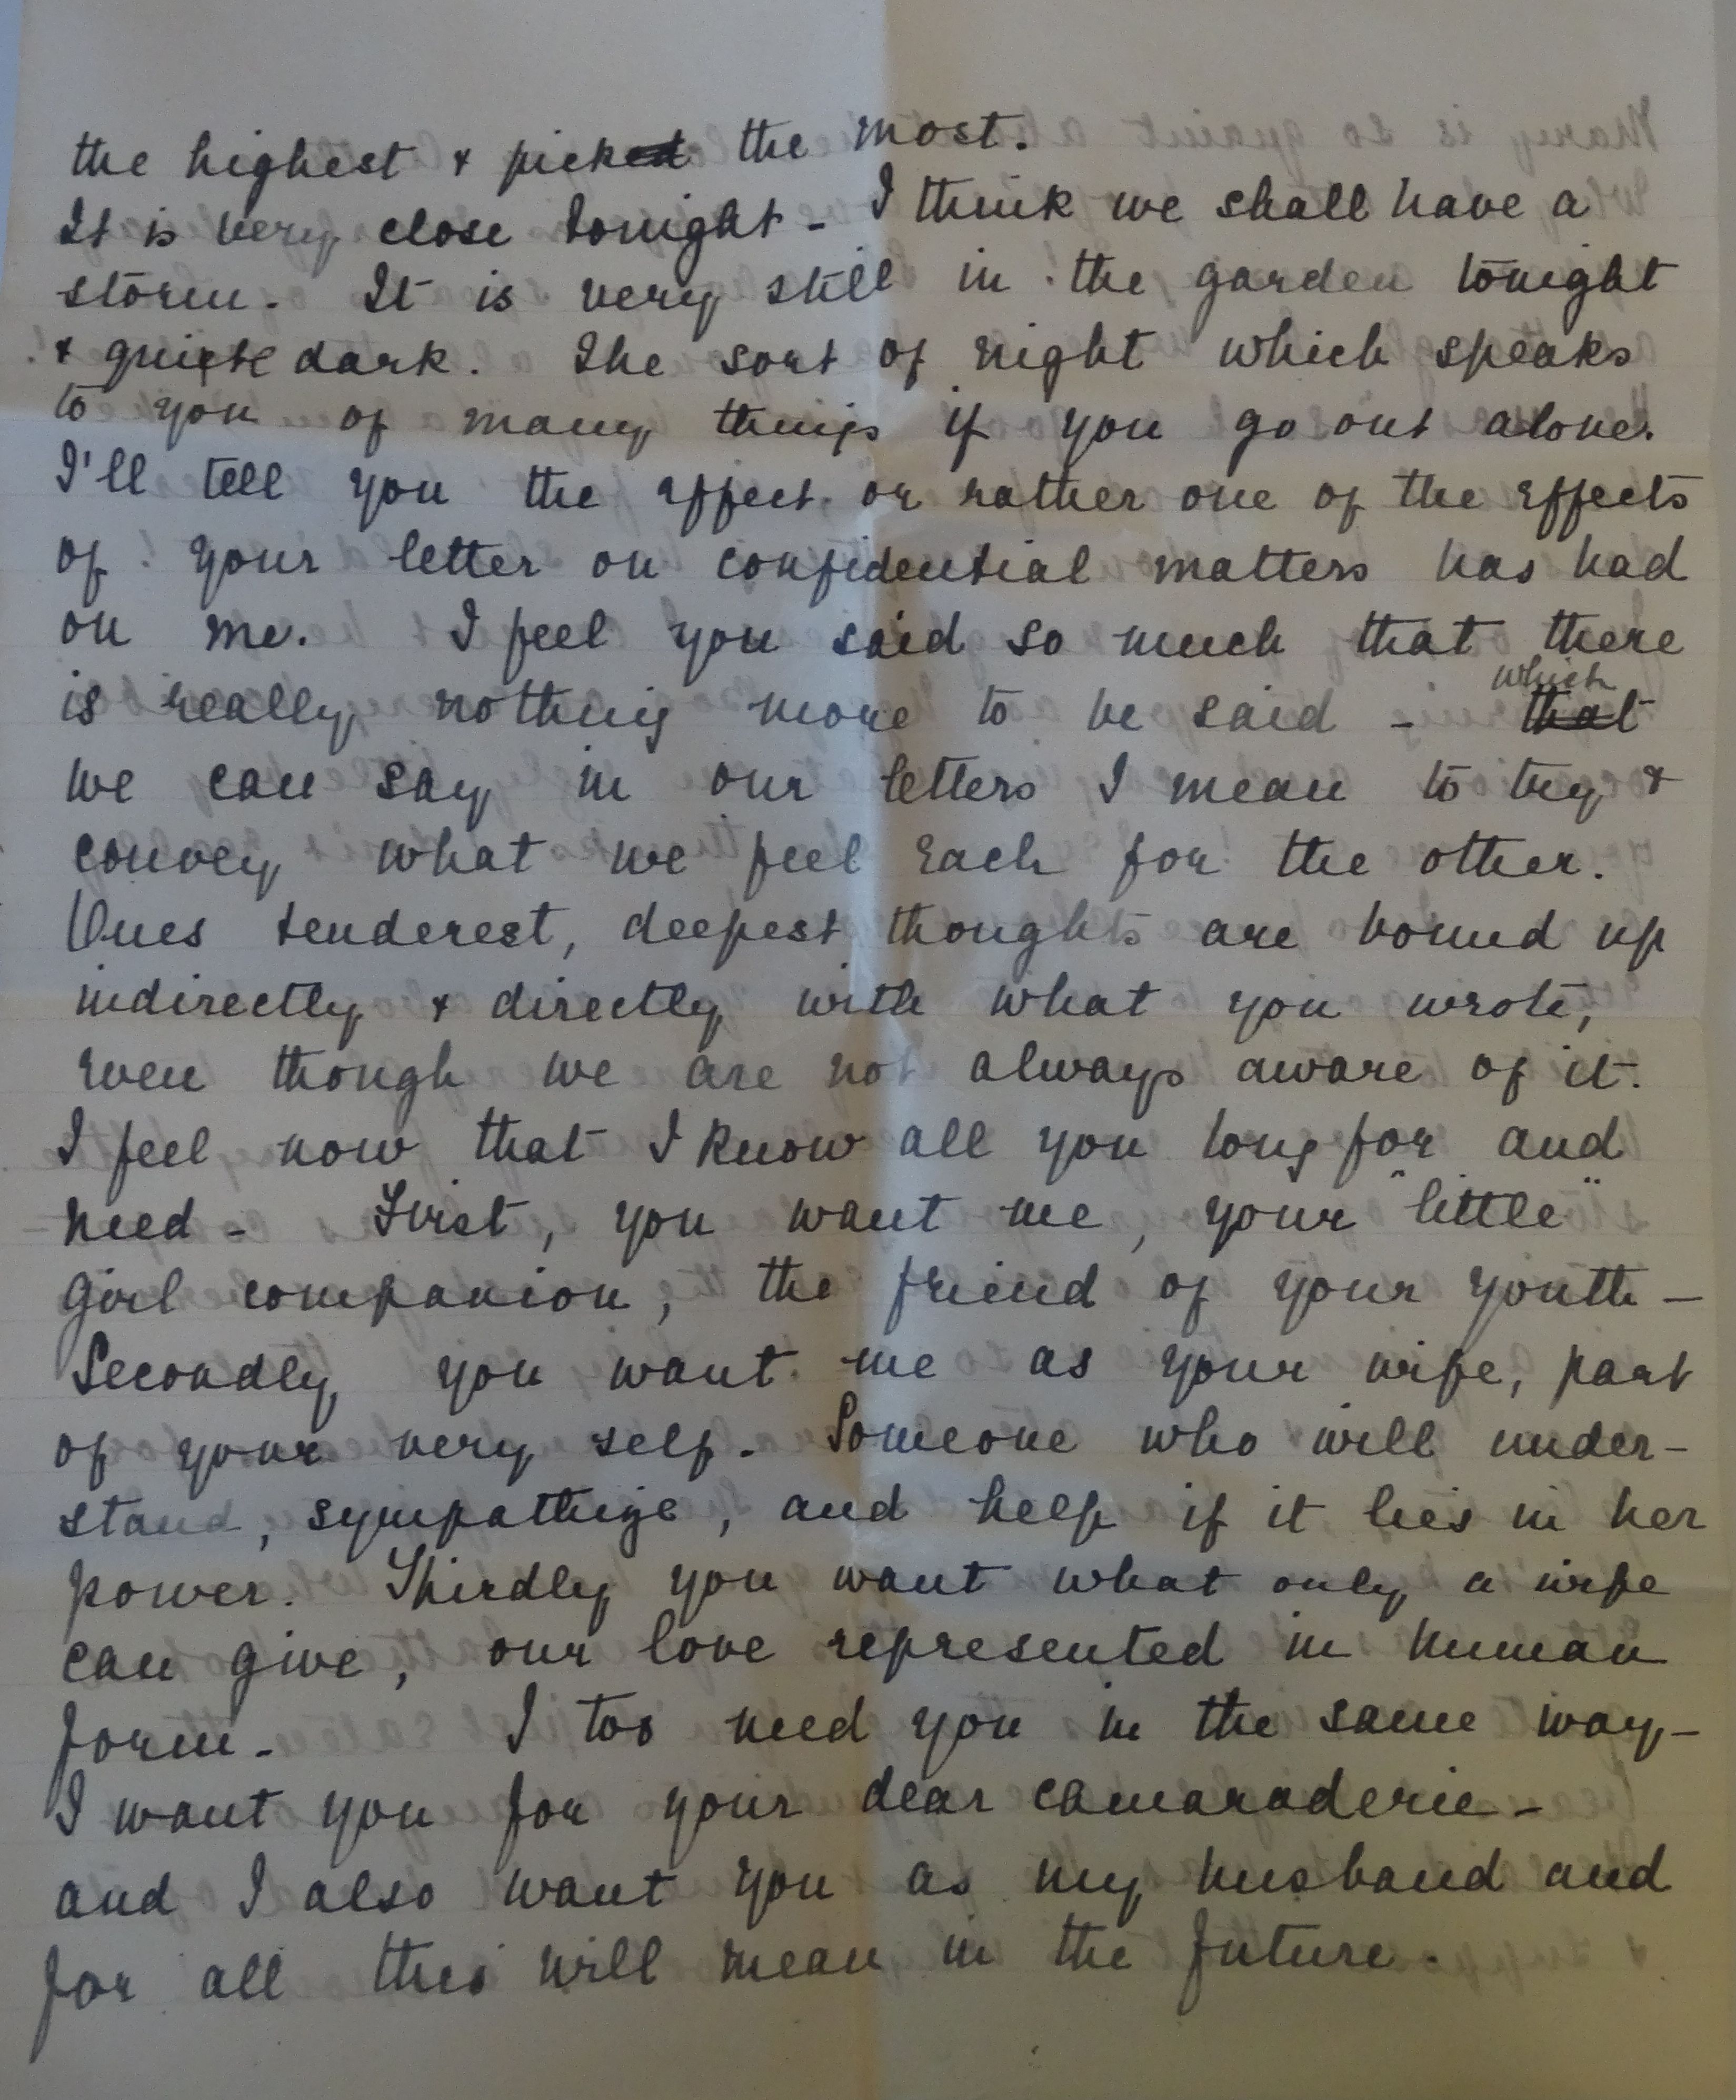 the highest & pick~~ed~~ the most.
It is very close tonight - I think we shall have a
storm. It is very still in the garden tonight
& quite dark. The sort of night which speaks
to you of many things if you go out alone.
I'll tell you the effect or rather one of the effects
of your letter on confidential matters has had
on me. I feel you said so much that there
is really nothing more to be said - ~~that~~ which
we can say in our letters I mean to try &
convey what we feel each for the other.
Ones tenderest, deepest thoughts are bound up
indirectly & directly with what you wrote,
even though we are not always aware of it.
I feel now that I know all you long for and
need - First, you want me, your "little"
girl companion, the friend of your youth -
Secondly you want me as your wife, part
of your very self. Someone who will under-
stand, sympathize, and help if it lies in her
power. Thirdly you want what only a wife
can give, our love represented in human
form - I too need you in the same way -
I want you for your dear camaraderie -
and I also want you as my husband and
for all this will mean in the future.